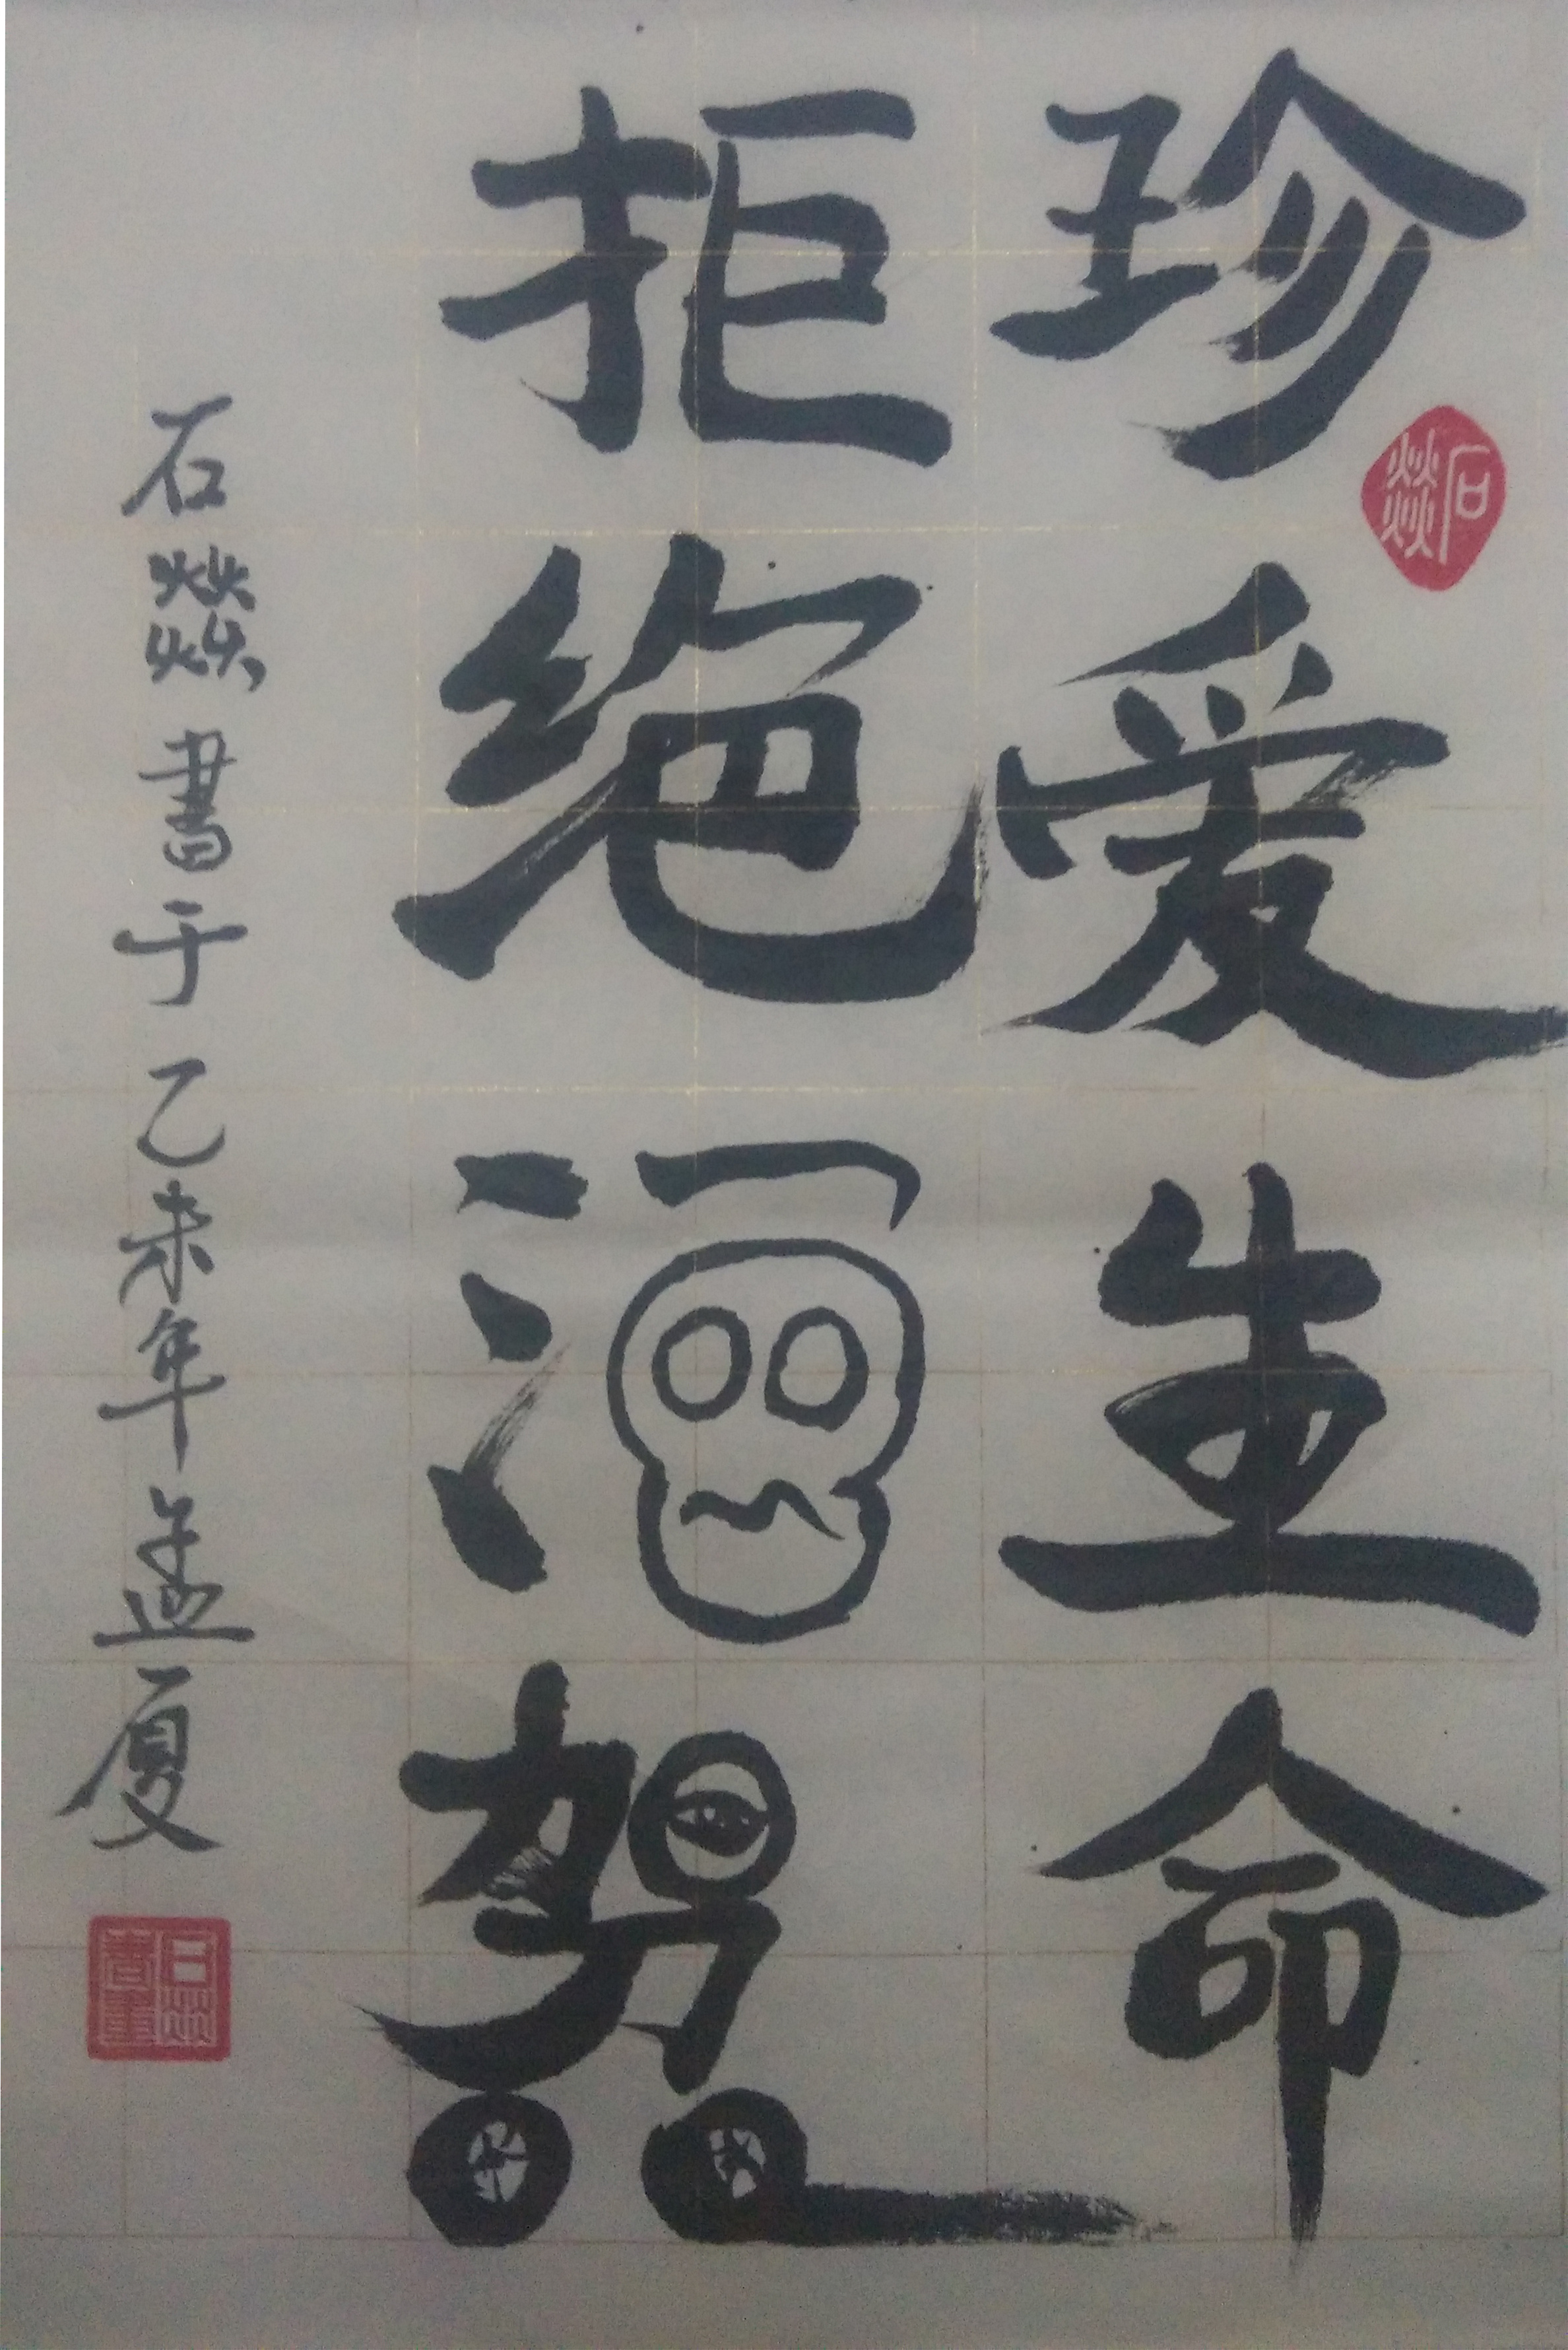 珍爱生命
拒绝酒驾
石燚書于乙未年孟夏
石燚